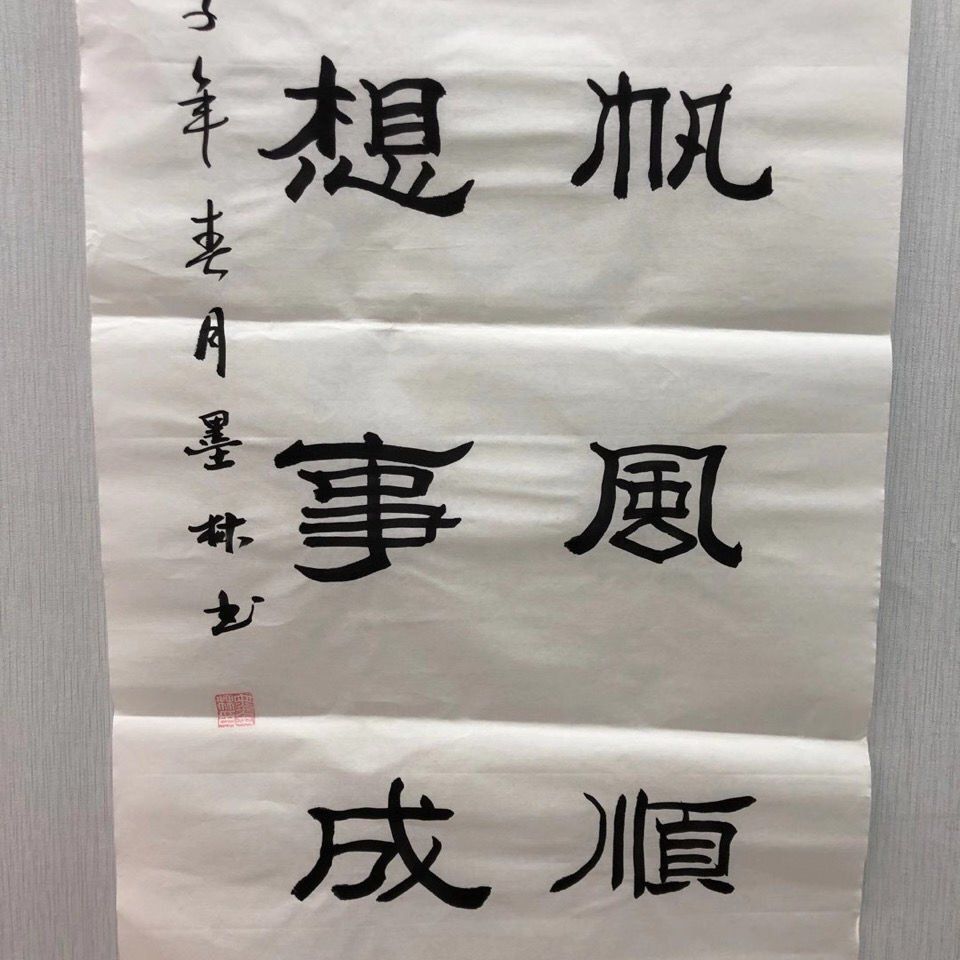 帆風順
想事成
子年春月墨林书